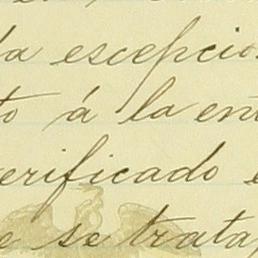 la escepcio
to á la ent
verificado e
e se trata,